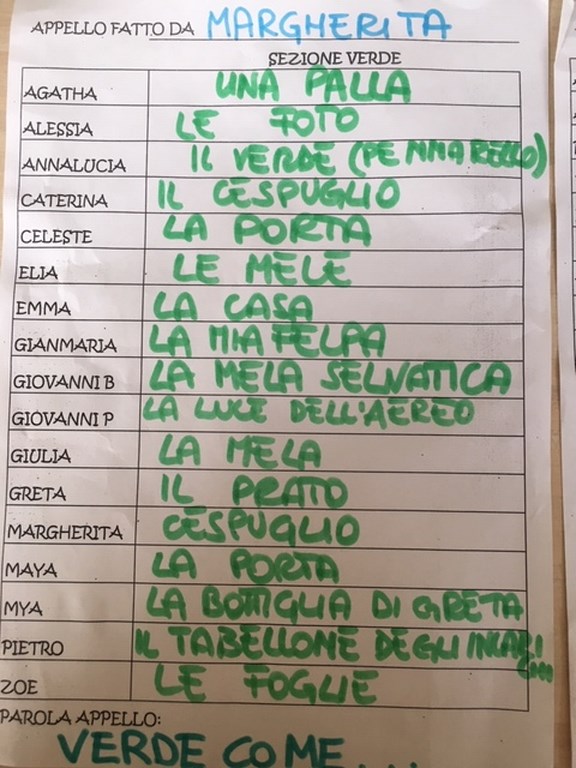 APPELLO FATTO DA MARGHERITA
SEZIONE VERDE
AGATHA UNA PALLA
ALESSIA LE FOTO
ANNALUCIA IL VERDE (PENNARELLO)
CATERINA IL CESPUGLIO
CELESTE LA PORTA
ELIA LE MELE
EMMA LA CASA
GIANMARIA LA MIA FELPA
GIOVANNI B LA MELA SELVATICA
GIOVANNI P LA LUCE DELL'AEREO
GIULIA LA MELA
GRETA IL PRATO
MARGHERITA CESPUGLIO
MAYA LA PORTA
MYA LA BOTTIGLIA DI GRETA
PIETRO IL TABELLONE DEGLI
ZOE LE FOGLIE
PAROLA APPELLO:
VERDE COME...